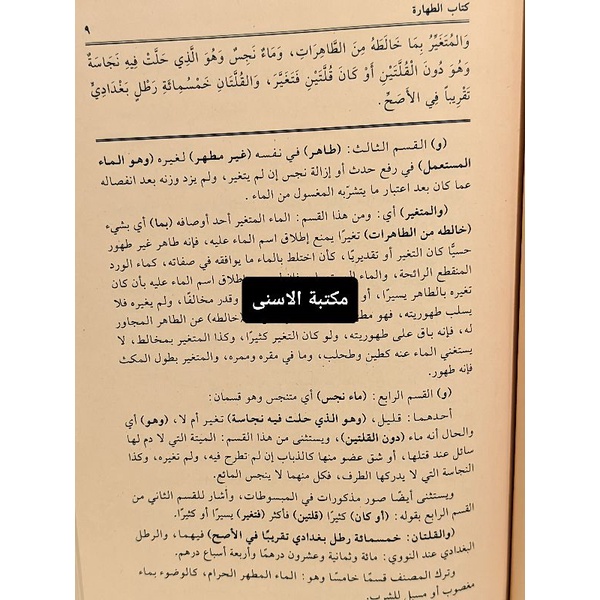 كتاب الطهارة
٩
وَالمُتَغَيِّرُ بِمَا خَالَطَهُ مِنَ الطَّاهِرَاتِ، وَمَاءٌ نَجِسٌ وَهُوَ الَّذِي حَلَّتْ فِيهِ نَجَاسَةٌ
وَهُوَ دُونَ الْقُلَّتَيْنِ أَوْ كَانَ قُلَّتَيْنِ فَتَغَيَّرَ، وَالقُلَّتَانِ خَمْسُمِائَةِ رَطْلٍ بَغْدَادِيٍّ
تَقْرِيباً فِي الأَصَحِّ.
(و) القسم الثالث: (طاهر) في نفسه (غير مطهر) لغيره (وهو الماء
المستعمل) في رفع حدث أو إزالة نجس إن لم يتغير، ولم يزد وزنه بعد انفصاله
عما كان بعد اعتبار ما يتشرّبه المغسول من الماء.
(والمتغير) أي: ومن هذا القسم: الماء المتغير أحد أوصافه (بما) أي بشيء
(خالطه من الطاهرات) تغيرًا يمنع إطلاق اسم الماء عليه، فإنه طاهر غير طهور
حسيًّا كان التغير أو تقديريًا، كأن اختلط بالماء ما يوافقه في صفاته، كماء الورد
المنقطع الرائحة، والماء إطلاق اسم الماء عليه بأن كان
تغيره بالطاهر يسيرًا، أو وقدر مخالفًا، ولم يغيره فلا
يسلب طهوريته، فهو خالطه) عن الطاهر المجاور
له، فإنه باق على طهوريته، ولو كان التغير كثيرًا، وكذا المتغير بمخالط، لا
يستغني الماء عنه كطين وطحلب، وما في مقره وممره، والمتغير بطول المكث
فإنه طهور.
(و) القسم الرابع: (ماء نجس) أي متنجس وهو قسمان:
أحدهما: قليل، (وهو الذي حلت فيه نجاسة) تغير أم لا، (وهو) أي
والحال أنه ماء (دون القلتين)، ويستثنى من هذا القسم: الميتة التي لا دم لها
سائل عند قتلها، أو شق عضو منها كالذباب إن لم تطرح فيه، ولم تغيره، وكذا
النجاسة التي لا يدركها الطرف، فكل منهما لا ينجس المائع.
ويستثنى أيضًا صور مذكورات في المبسوطات، وأشار للقسم الثاني من
القسم الرابع بقوله: (أو كان) كثيرًا (قلتين) فأكثر (فتغير) يسيرًا أو كثيرًا.
(والقلتان: خمسمائة رطل بغدادي تقريبًا في الأصح) فيهما، والرطل
البغدادي عند النووي: مائة وثمانية وعشرون درهمًا وأربعة أسباع درهم.
وترك المصنف قسمًا خامسًا وهو: الماء المطهر الحرام، كالوضوء بماء
مغصوب أو مسبل للشرب.
مكتبة الاسنى